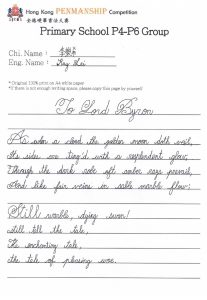 Hong Kong PENMANSHIP Competition
全港硬筆書法大賽
Primary School P4-P6 Group
Chi. Name :
Eng. Name :
*Original 100% print on A4 white paper
*If there is not enough writing space, please copy this page by yourself
To Lord Byron
As when a cloud the golden moon doth veil,
Its sides are ting'd with a resplendent glow,
Through the dark robe oft amber rays prevail,
And like fair veins in sable marble flow;
Still warble, dying swan!
still tell the tale,
The enchanting tale,
the tale of pleasing woe.